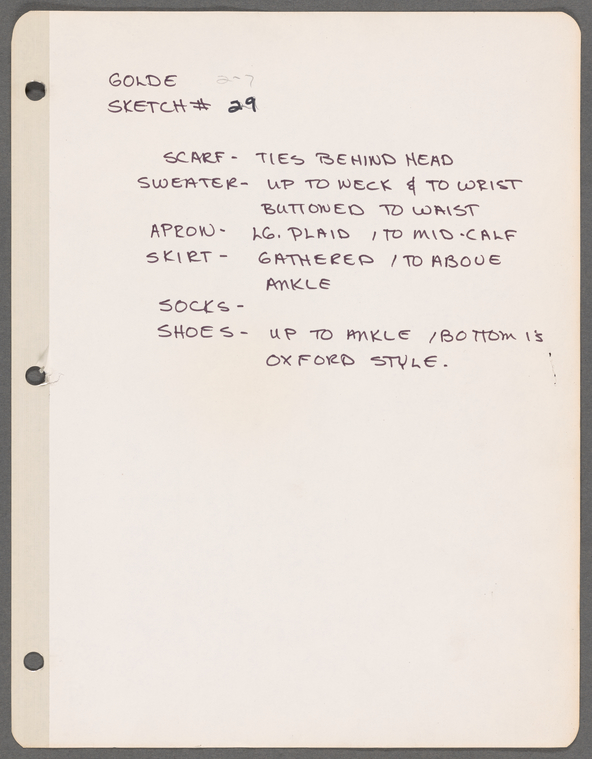 GOLDE 2-7
SKETCH # 29
SCARF - TIES BEHIND HEAD
SWEATER - UP TO NECK & TO WRIST
BUTTONED TO WAIST
APRON - LG. PLAID / TO MID-CALF
SKIRT - GATHERED / TO ABOVE
ANKLE
SOCKS -
SHOES - UP TO ANKLE / BOTTOM is
OXFORD STYLE.